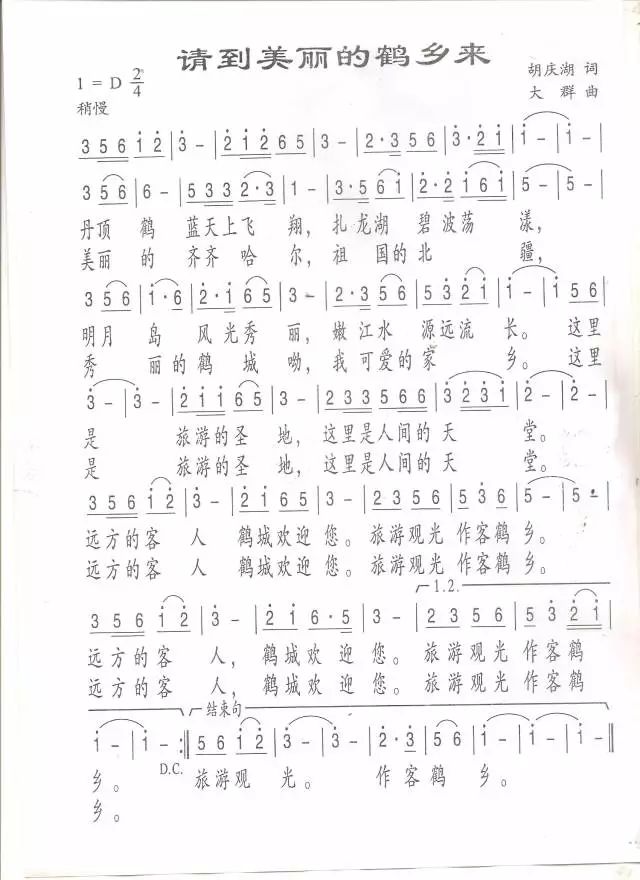 请到美丽的鹤乡来
1 = D 2/4
胡庆湖 词
稍慢
大 群 曲
3 5 6 1 2 | 3 - | 2 1 2 6 5 | 3 - | 2 · 3 | 5 6 | 3 · 2 1 | 1 - | 1 - |
3 5 6 | 6 - | 5 3 3 2 · 3 | 1 - | 3 · 5 6 1 | 2 · 2 | 1 6 1 | 5 - | 5 - |
丹顶 鹤 蓝天上飞 翔，扎龙湖 碧波荡 漾，
美丽 的 齐齐 哈 尔，祖 国的北 疆，
3 5 6 | 1 · 6 | 2 · 1 6 5 | 3 - | 3 · 2 3 5 | 5 6 | 5 3 2 1 | 1 - | 1 5 6 |
明月 岛 风光秀 丽，嫩江水 源远流 长。这里
秀 丽的鹤 城 呦，我可爱的家 乡。这里
3 - | 3 - | 2 1 1 1 6 5 | 3 - | 2 3 3 5 6 | 1 2 3 | 2 - | 2 - |
是 旅游的圣 地，这里是人间的天 堂。
是 旅游的圣 地，这里是人间的天 堂。
3 5 6 1 2 | 3 - | 2 · 1 6 5 | 3 - | 2 3 5 6 | 5 3 6 | 5 - | 5 - |
远方的客 人 鹤城欢迎 您。旅游观光 作客鹤乡。
远方的客 人 鹤城欢迎 您。旅游观光 作客鹤乡。
1.2.
3 5 6 1 2 | 3 - | 2 1 6 · 5 | 3 - | 2 3 5 6 | 5 3 2 1 |
远方的客 人，鹤城欢 迎 您。旅游观光 作客鹤
远方的客 人，鹤城欢 迎 您。旅游观光 作客鹤
结束句
1 - | 1 - :‖ 5 6 1 2 | 3 - | 3 - | 2 · 3 | 5 6 | 1 - | 1 - ‖
D.C.
乡。 旅游观 光。 作客鹤 乡。
乡。